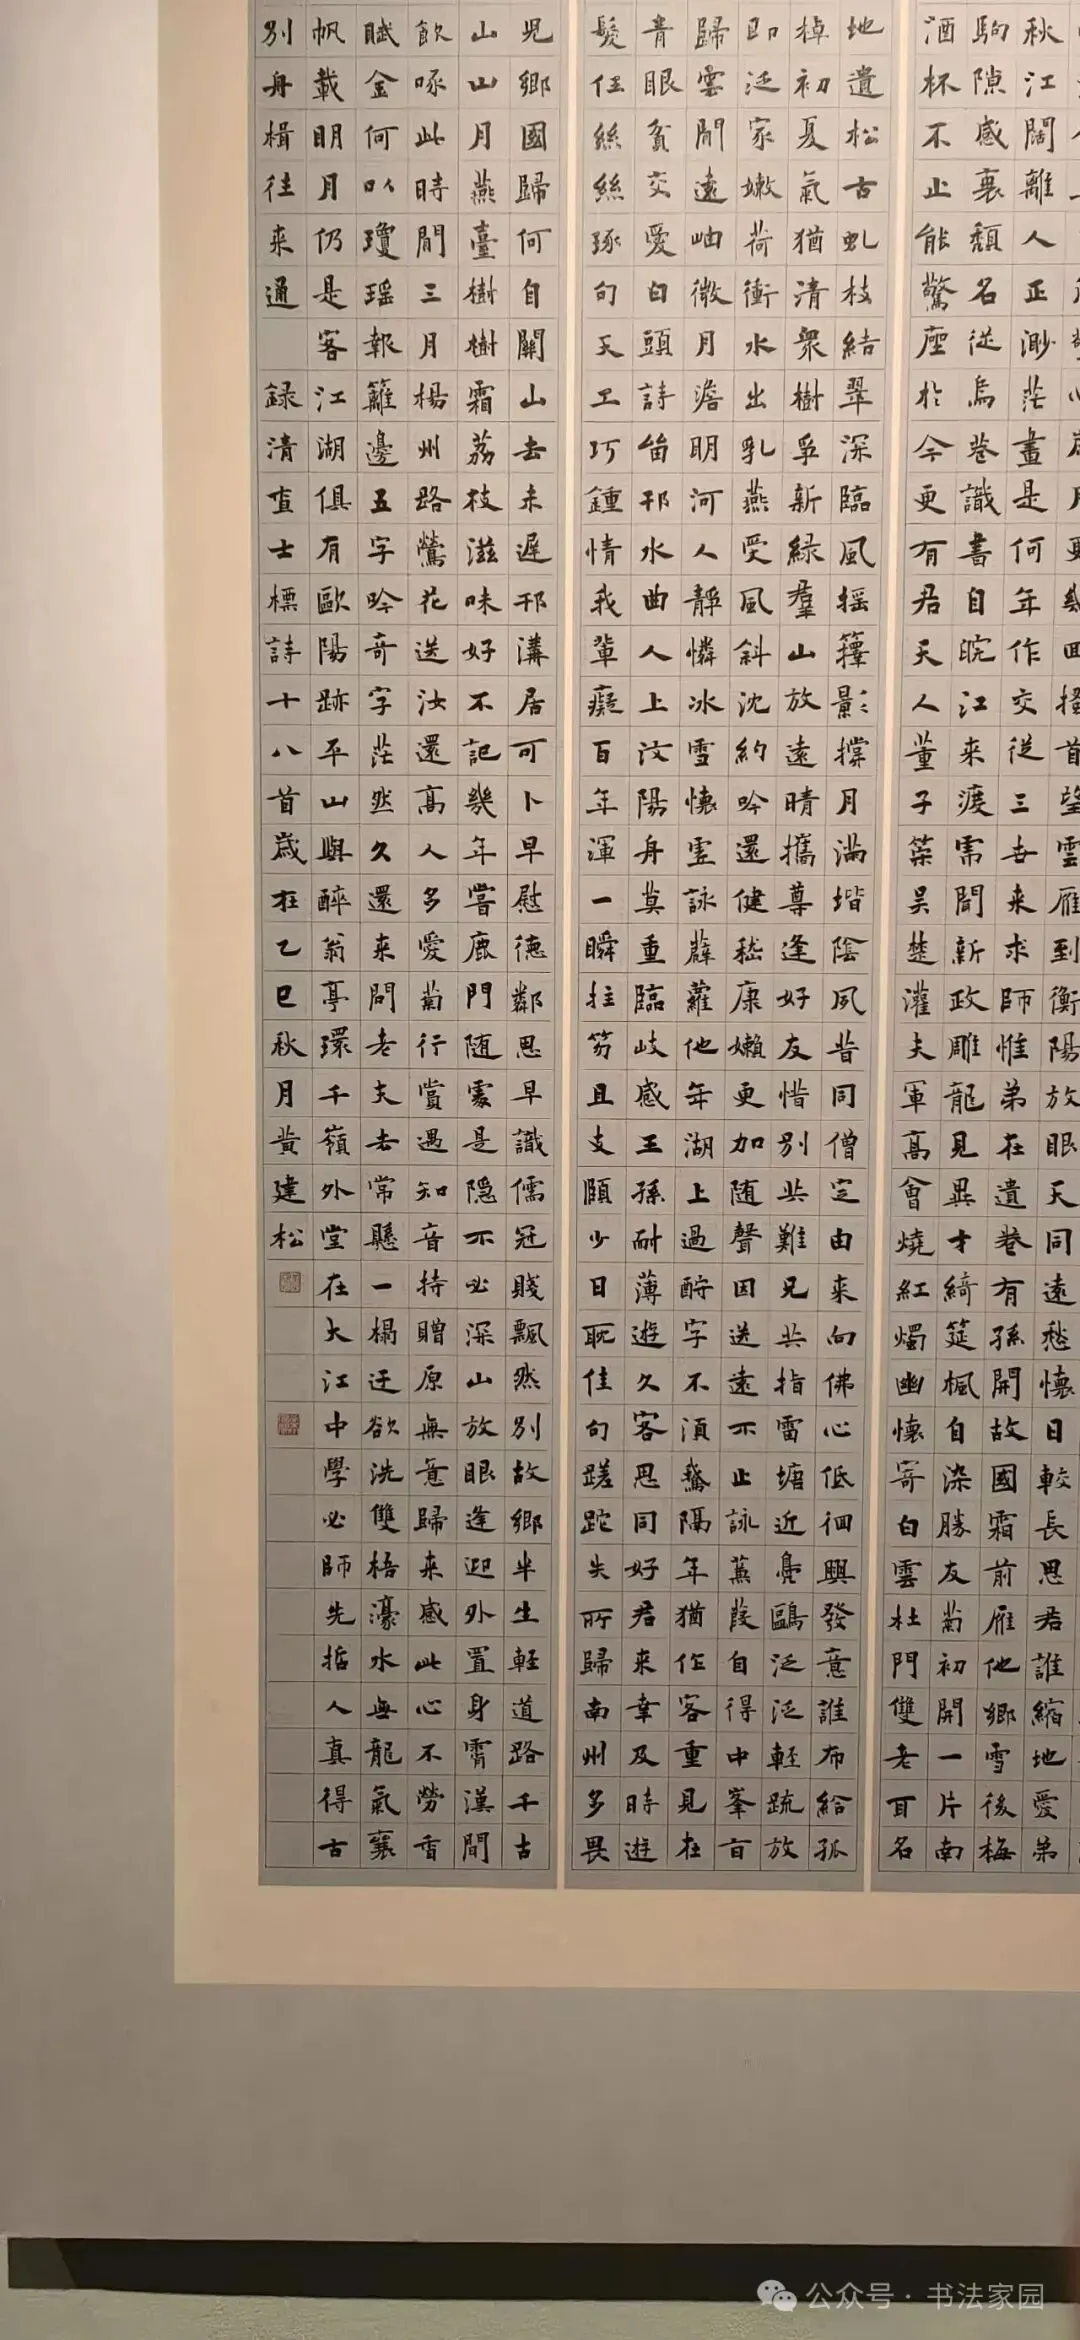 首望雲雁到衡陽放眼天同遠愁懷日較長思君誰縮地愛弟
秋江闊離人正渺茫畫是何年作交從三世来求師惟弟在遺卷有孫開故國霜前雁他鄉雪後梅
駒隙感衰頹名從烏巷識書自皖江来淚霈聞新政雕龍見異才綺筵楓自染勝友菊初開一片南
酒杯不止能驚座於今更有君天人董子策吳楚灌夫軍高會燒紅燭幽懷寄白雲杜門雙老耳名
地遺松古虬枝結翠深臨風搖籜影撐月滿堦陰夙昔同僧定由来向佛心低徊興發意誰布給孤
棹初夏氣猶清眾樹孚新綠羣山放遠晴攜尊逢好友惜別共難兄共指雷塘近鳧鷗泛泛輕疏放
即泛家嫩荷衝水出乳燕受風斜沈約吟還健嵇康嬾更加随聲因送遠不止詠蒹葭自得中峯百
歸雲閒遠岫微月澹明河人靜憐冰雪懷虛詠薜蘿他年湖上過酧字不須鵞隔年猶作客重見在
青眼貧交愛白頭詩畄邗水曲人上汶陽舟莫重臨岐感王孫耐薄遊久客思同好君来幸及時遊
髮任絲絲琢句天工巧鍾情我輩癡百年渾一瞬拄笏且支頤少日耽佳句蹉跎失所歸南州多畏
児鄉國歸何自關山去未遲邗溝居可卜早慰德鄰思早識儒冠賤飄然別故鄉半生輕道路千古
山山月燕臺樹樹霜荔枝滋味好不記幾年嘗鹿門随處是隱不必深山放眼逢迎外置身霄漢間
飲啄此時閒三月楊州路鶯花送汝還高人多愛菊行賞遇知音持贈原無意歸来感此心不勞香
賦金何以瓊瑶報籬邊五字吟奇字茫然久還来問老夫去常懸一榻迂欲洗雙梧濠水無龍氣襄
帆載明月仍是客江湖俱有歐陽跡平山與醉翁亭環千嶺外堂在大江中學必師先哲人真得古
別舟楫往来通 録清查士標詩十八首歲在乙巳秋月黄建松
公众号·书法家园